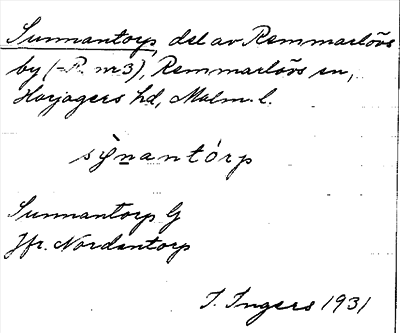 Sunnantorp, del av Remmarlövs
by (=P. nr 3), Remmarlövs sn,
Harjagers hd, Malm. l.
sỳnantórp
Sunnantorp G
Jfr. Nordantorp
I. Ingers 1931